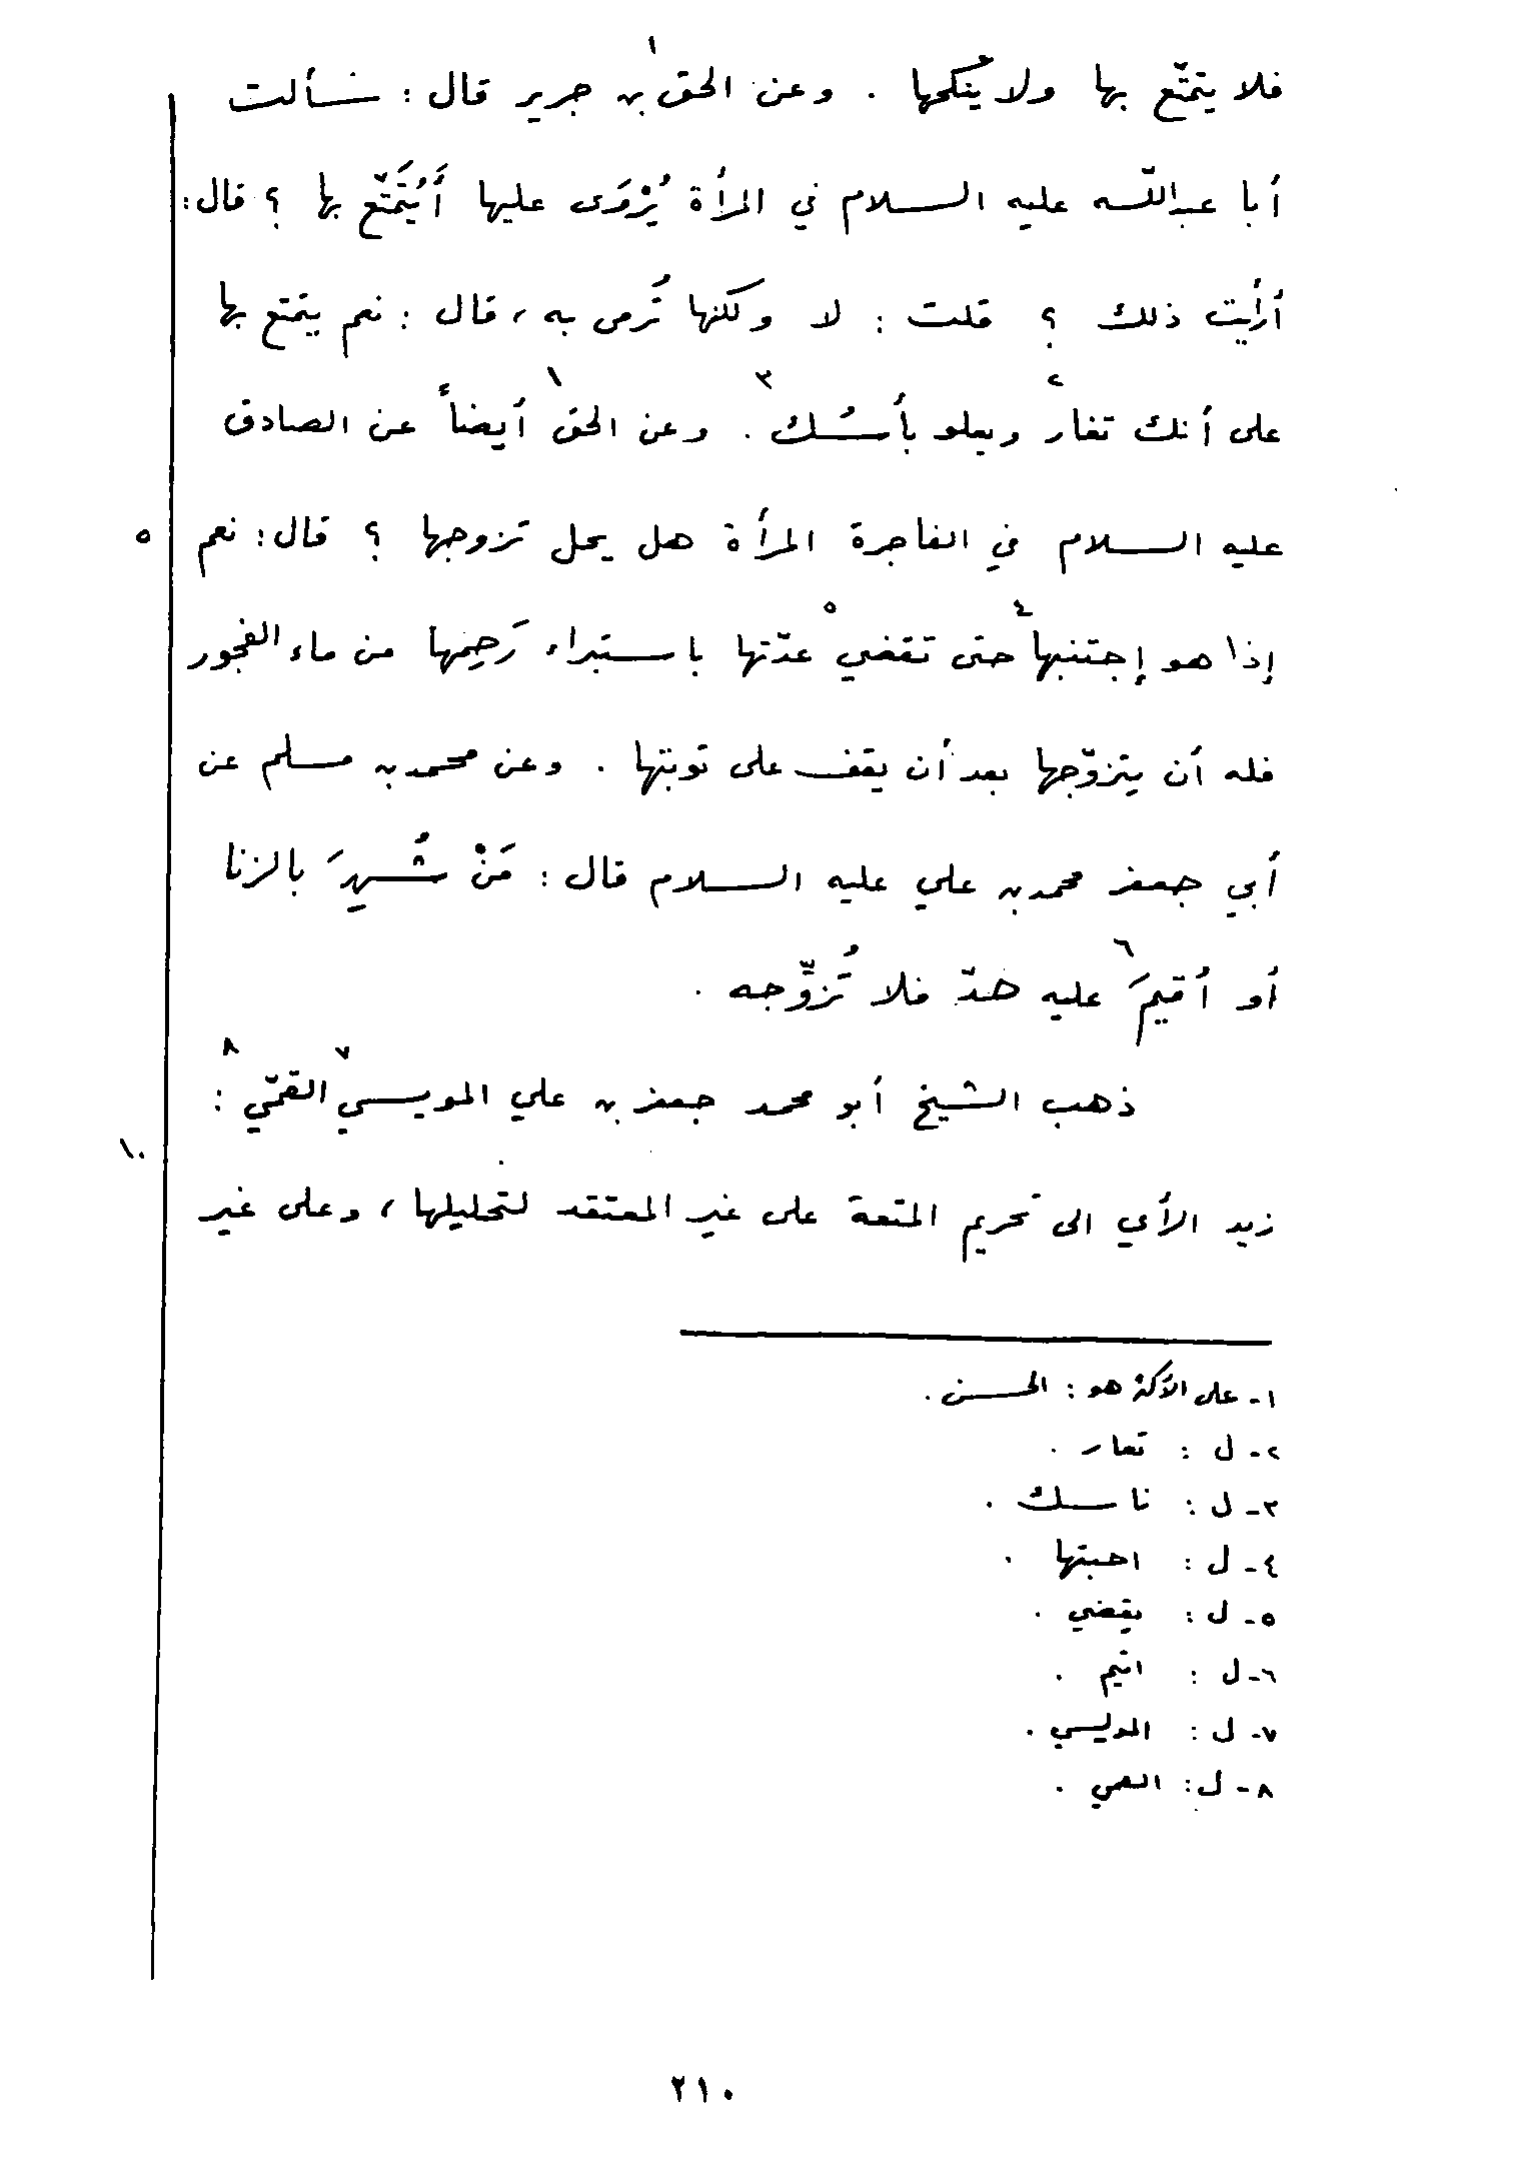 فلا يتمتّع بها ولا يُنكحها . وعن الحق١ بن جرير قال : سألت
أبا عبدالله عليه السلام في المرأة يُزْوَى عليها أَيُتَمَتّع بها ؟ قال :
أرأيت ذلك ؟ قلت : لا ولكنها تُرمى به ، قال : نعم يتمتع بها
على أنك تغار٢ ويعلو بأسُك٣ . وعن الحق١ أيضاً عن الصادق
عليه السلام في الفاجرة المرأة هل يحل تزوجها ؟ قال : نعم
٥
إذا هو إجتنبها٤ حتى تقضي٥ عدّتها باستبراء رَحِمها من ماء الفجور
فله أن يتزوّجها بعد أن يقف على توبتها . وعن محمد بن مسلم عن
أبي جعفر محمد بن علي عليه السلام قال : مَنْ شُهِرَ بالزنا
أو أقيمَ٦ عليه حدّ فلا تُزوِّجه .
ذهب الشيخ أبو محمد جعفر بن علي المويسي٧ القمّي٨ :
١٠
زيد الرأي الى تحريم المتعة على غير المعتقد لتحليلها ، وعلى غير
١- على الأكثر هو : الحسن .
٢- ل : تعار .
٣- ل : ناسك .
٤- ل : احبتها .
٥- ل : يقضي .
٦- ل : اتيم .
٧- ل : الموليسي .
٨- ل : العمي .
٢١٠